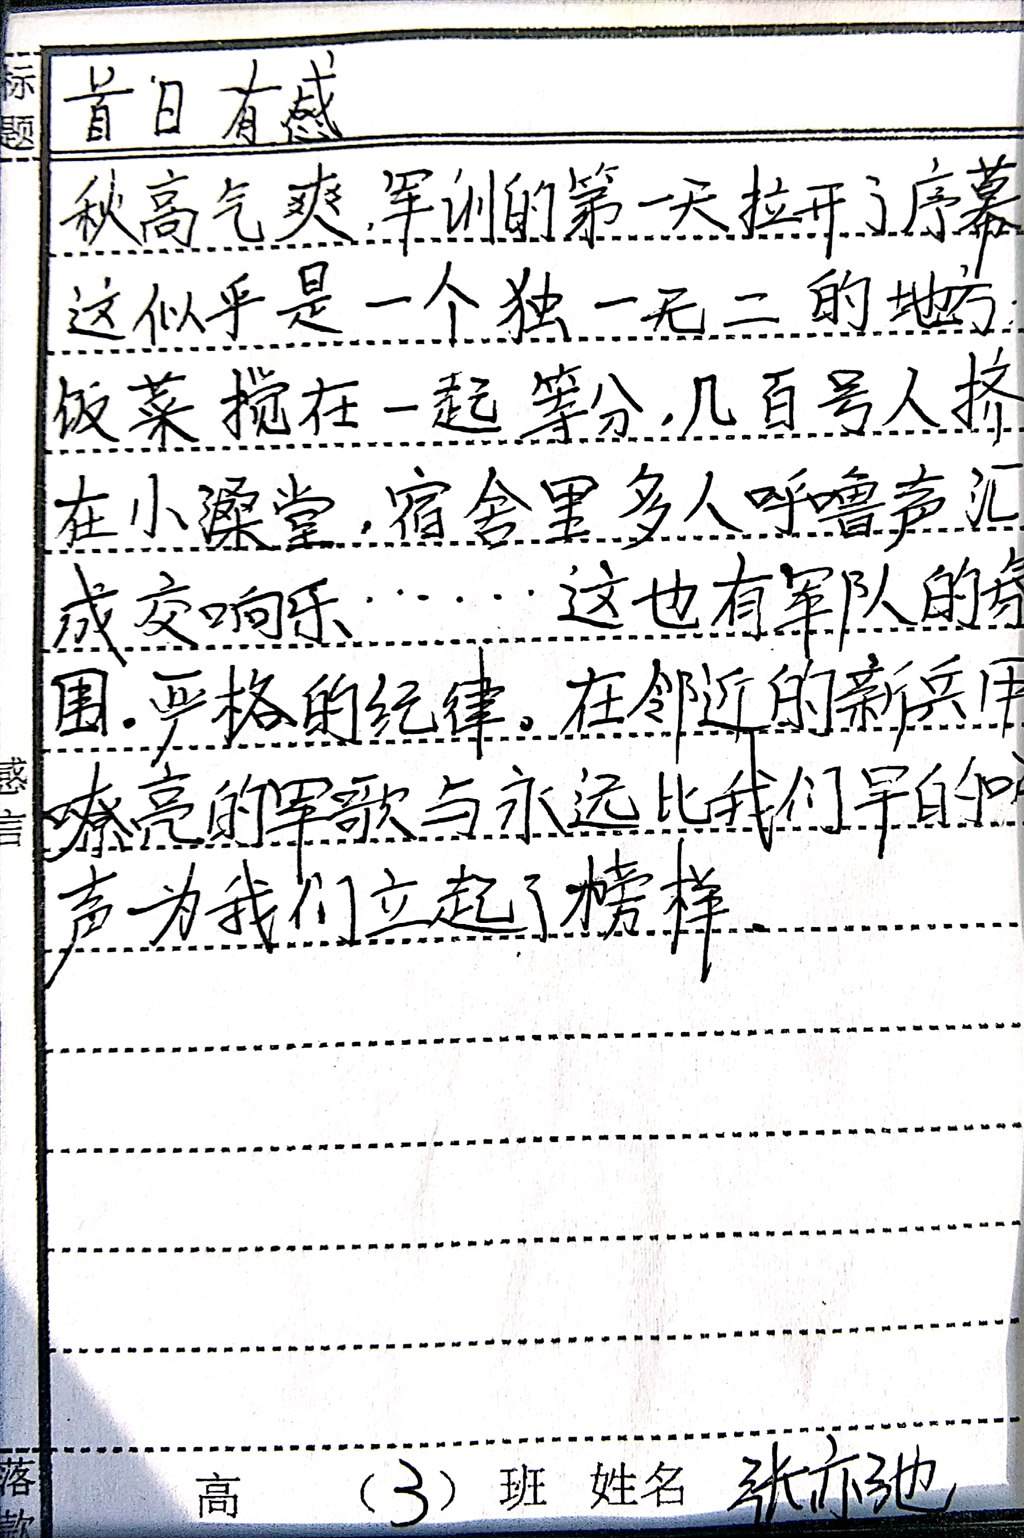 标题
首日有感
秋高气爽，军训的第一天拉开了序幕
这似乎是一个独一无二的地方.
饭菜搅在一起等分，几百号人挤
在小澡堂，宿舍里多人呼噜声汇
成交响乐……这也有军队的氛
围.严格的纪律。在邻近的新兵用
嘹亮的军歌与永远比我们早的
声为我们立起了榜样.
感言
落款
高（3）班 姓名 张亦弛